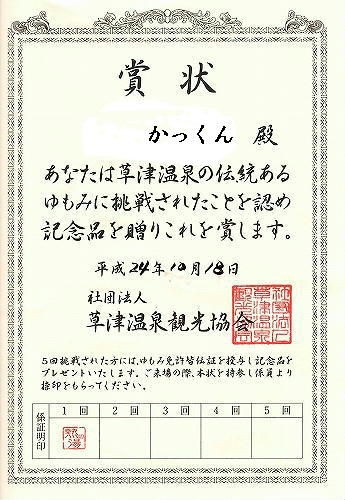 賞状
かっくん 殿
あなたは草津温泉の伝統ある
ゆもみに挑戦されたことを認め
記念品を贈りこれを賞します。
平成24年10月18日
社団法人
草津温泉観光協会
5回挑戦された方には、ゆもみ免許皆伝証を授与し記念品を
プレゼントいたします。ご来場の際、本状を持参し係員より
捺印をもらってください。
係証明印
1回 2回 3回 4回 5回
熱の湯